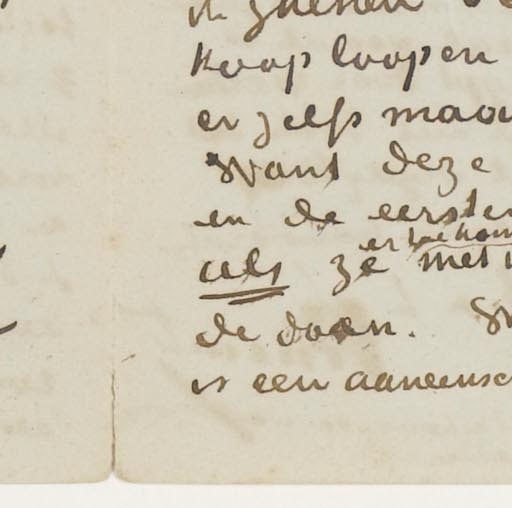 koop loopen
er zelfs maar
Want deze
en de eersten
er toe kom
als ze met
de doen. W
is een aaneensc